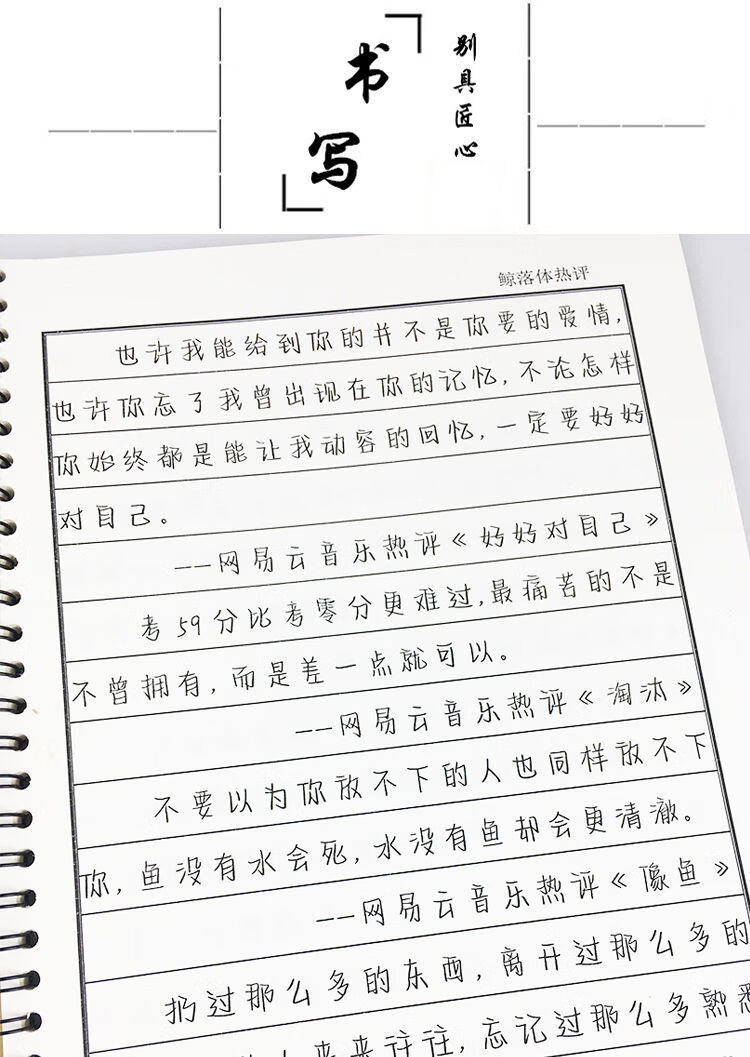 书写
别具匠心
鲸落体热评
也许我能给到你的并不是你要的爱情,
也许你忘了我曾出现在你的记忆,不论怎样
你始终都是能让我动容的回忆,一定要好好
对自己。
--网易云音乐热评《好好对自己》
考59分比考零分更难过,最痛苦的不是
不曾拥有,而是差一点就可以。
--网易云音乐热评《淘汰》
不要以为你放不下的人也同样放不下
你,鱼没有水会死,水没有鱼却会更清澈。
--网易云音乐热评《像鱼》
扔过那么多的东西,离开过那么多的
人来来往往,忘记过那么多熟悉